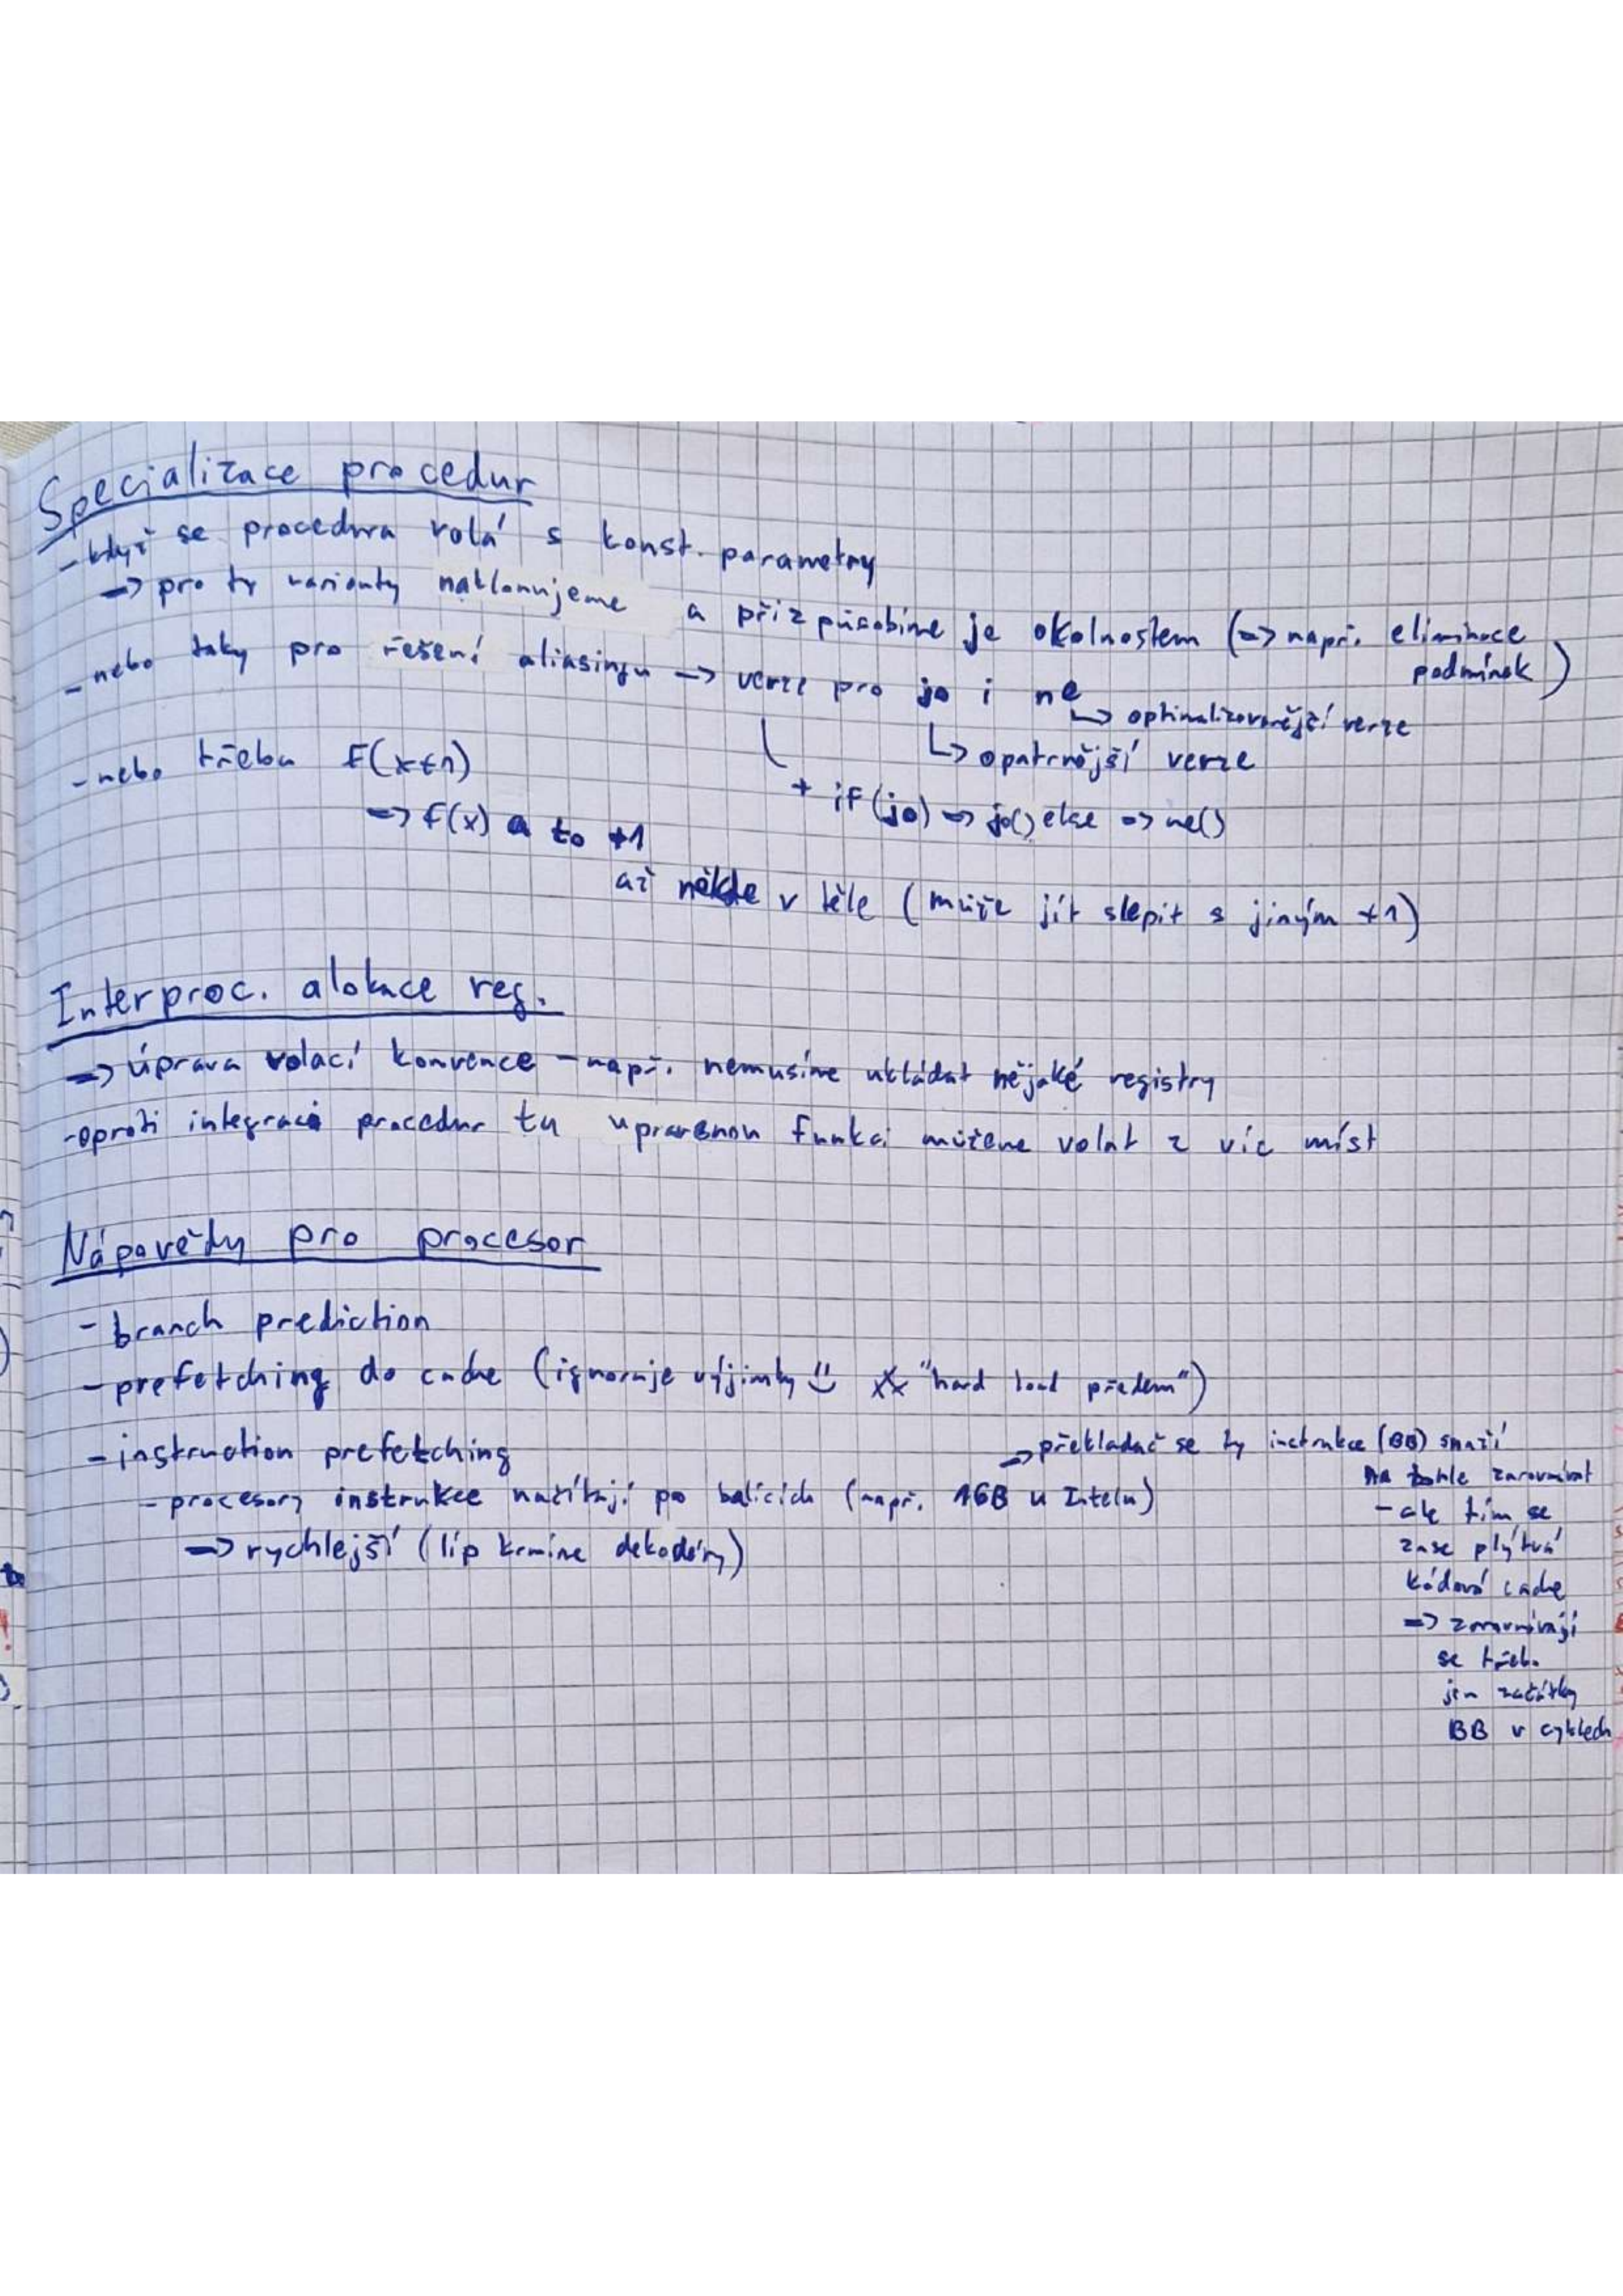 Specializace procedur
- když se procedura volá s konst. parametry
=> pro ty varianty naklonujeme a přizpůsobíme je okolnostem (=> např. eliminace podmínek)
- nebo taky pro řešení aliasingu -> verze pro jo i ne
↳ optimalizovanější verze
↳ opatrnější verze
+ if (jo) => jo() else => ne()
- nebo třeba f(x+1)
=> f(x) a to +1
až někde v těle (může jít slepit s jiným +1)
Interproc. alokace reg.
=> úprava volací konvence - např. nemusíme ukládat nějaké registry
- oproti integraci procedur tu upravenou funkci můžeme volat z víc míst
Nápovědy pro procesor
- branch prediction
- prefetching do cache (ignoruje výjimky ☺ "hard load předem")
- instruction prefetching
- procesory instrukce načítají po balících (např. 16B u Intelu)
=> rychlejší (líp krmíme dekodéry)
-> překladač se ty instrukce (BB) snaží
na tohle zarovnávat
- ale tím se
zase plýtvá
kódová cache
=> zarovnávají
se třeba
jen začátky
BB v cyklech